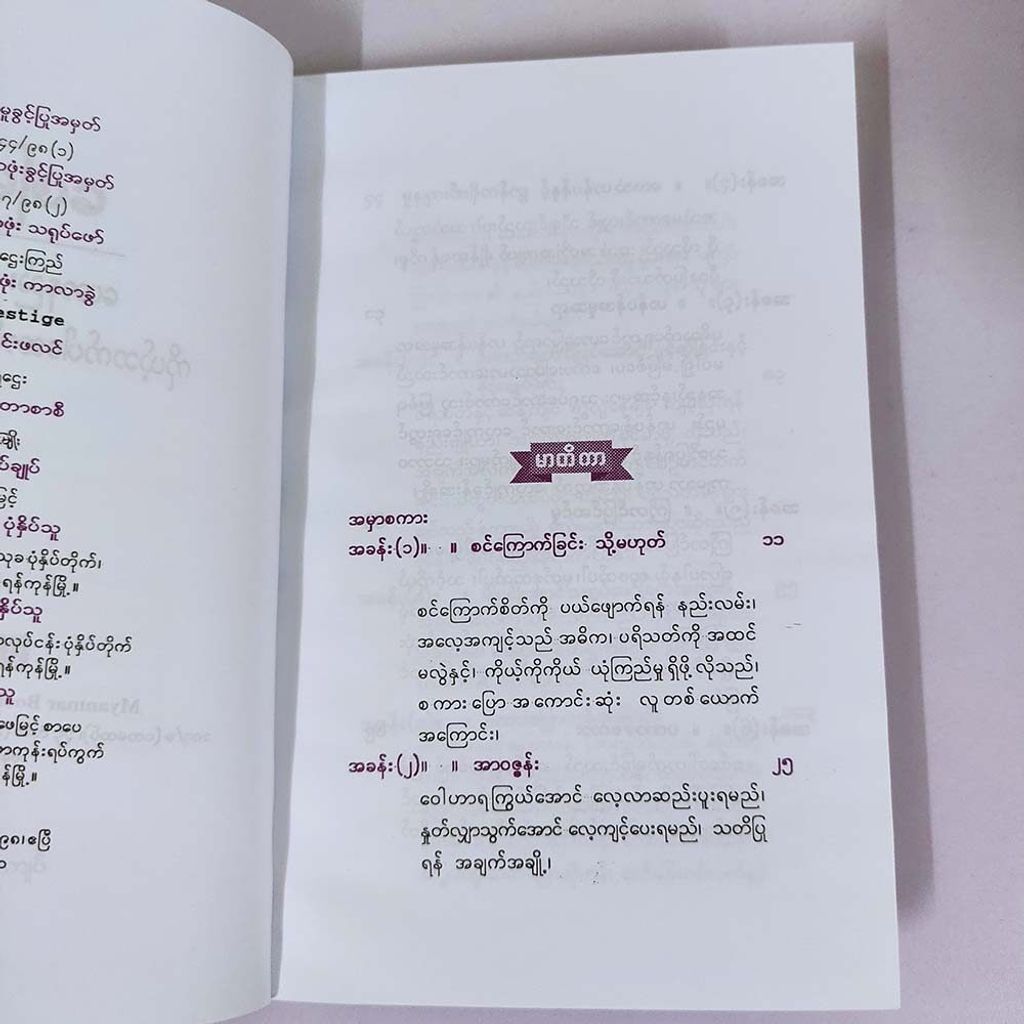 မူခွင့်ပြုအမှတ်
၄၄/၉၈(၁)
ဖုံးခွင့်ပြုအမှတ်
၇/၉၈(၂)
ဖုံး သရုပ်ဖော်
ဌေးကြည်
ဖုံး ကာလာခွဲ
estige
င်းဖလင်
ဌေး
တာစာစီ
ချိုး
ပ်ချုပ်
မြင့်
ပုံနှိပ်သူ
သုခ ပုံနှိပ်တိုက်၊
ရန်ကုန်မြို့။
နှိပ်သူ
လုပ်ငန်း ပုံနှိပ်တိုက်
ရန်ကုန်မြို့။
သူ
ဖေမြင့် စာပေ
ကုန်းရပ်ကွက်
န်မြို့။
၉၈၊ ဧပြီ
မာတိကာ
အမှာစကား
အခန်း(၁)။ ။ စင်ကြောက်ခြင်း သို့မဟုတ် ၁၁
စင်ကြောက်စိတ်ကို ပယ်ဖျောက်ရန် နည်းလမ်း၊
အလေ့အကျင့်သည် အဓိက၊ ပရိသတ်ကို အထင်
မလွဲနှင့်၊ ကိုယ့်ကိုကိုယ် ယုံကြည်မှု ရှိဖို့ လိုသည်၊
စကားပြော အကောင်းဆုံး လူတစ်ယောက်
အကြောင်း၊
အခန်း(၂)။ ။ အာဝဇ္ဇန်း ၂၅
ဝေါဟာရကြွယ်အောင် လေ့လာဆည်းပူးရမည်၊
နှုတ်လျှာသွက်အောင် လေ့ကျင့်ပေးရမည်၊ သတိပြု
ရန် အချက်အချို့၊